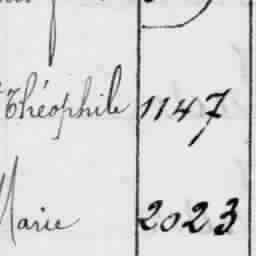 Théophile 1147
Marie 2023